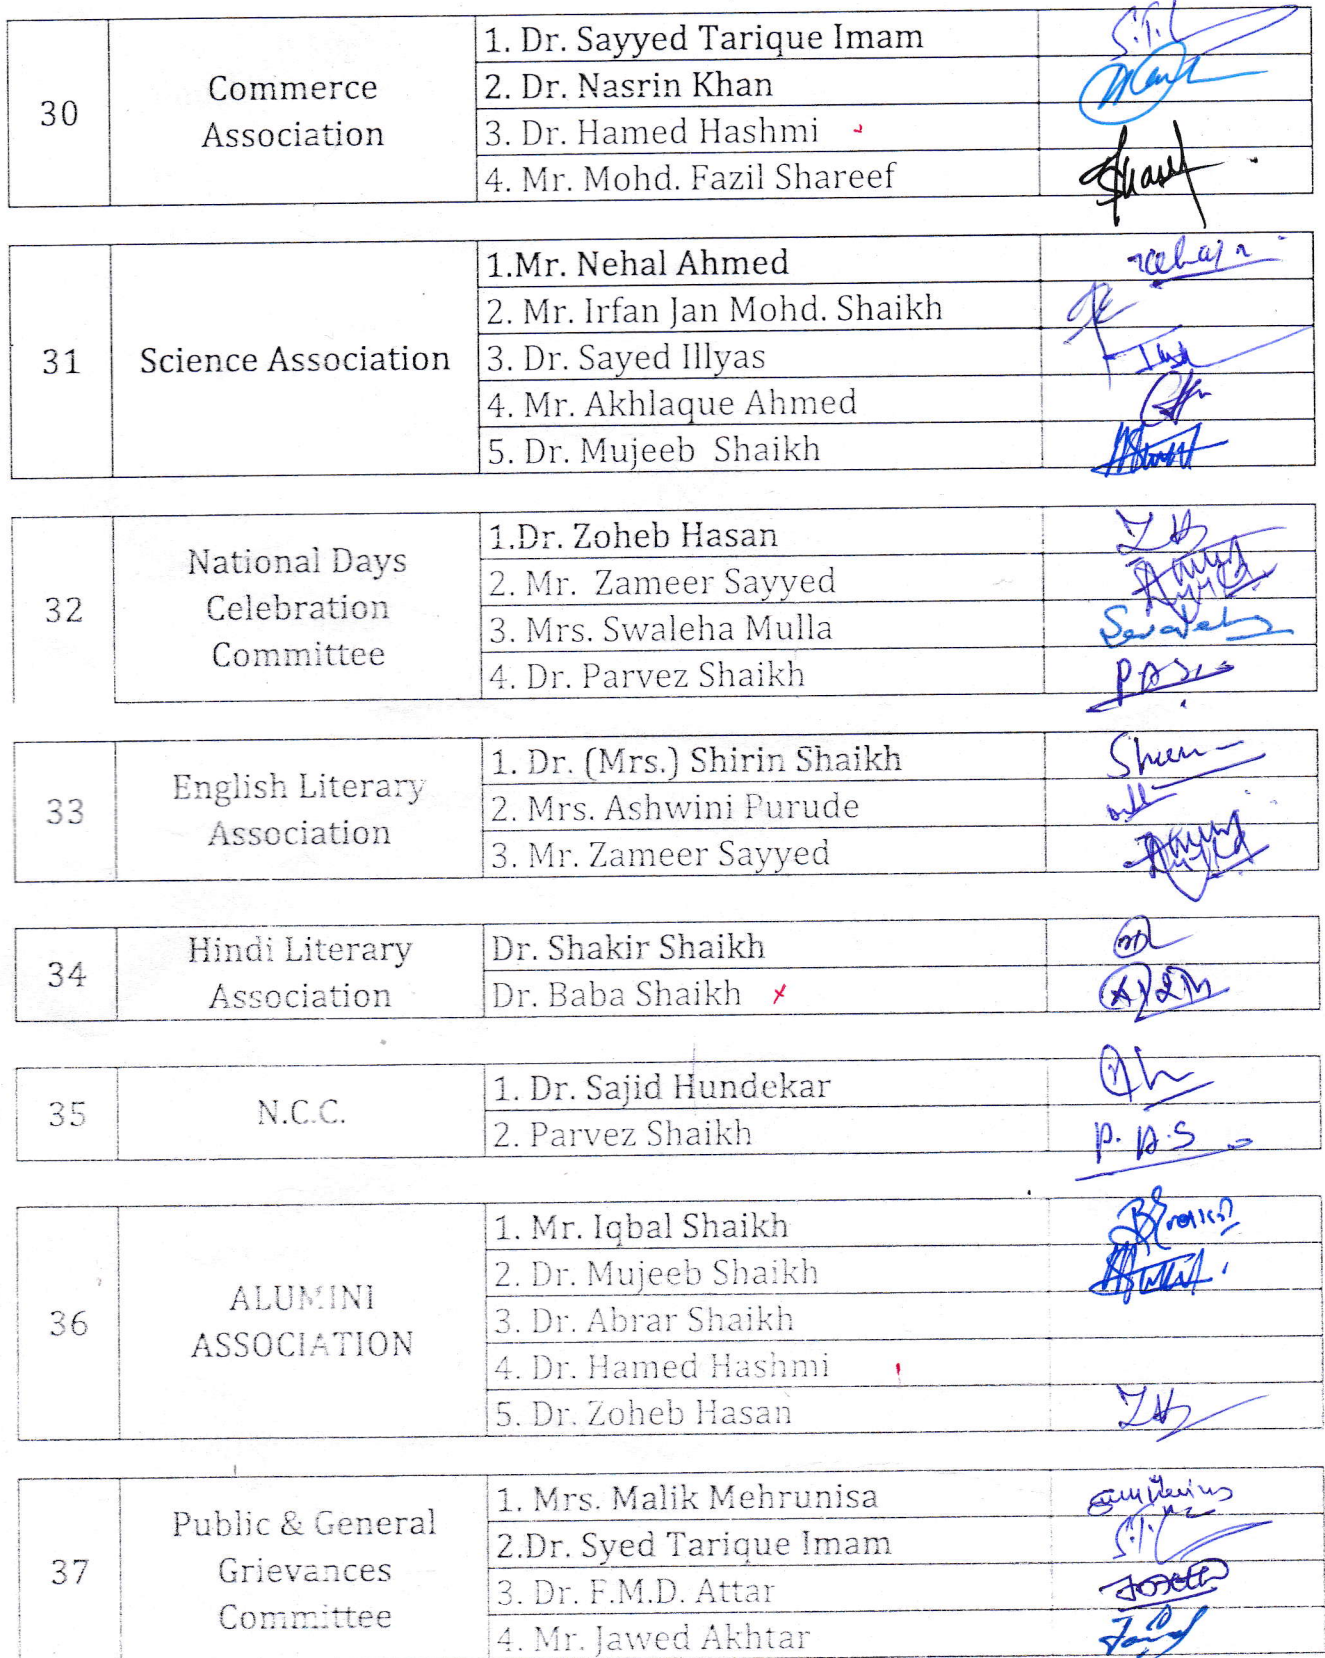 30
Commerce
Association
1. Dr. Sayyed Tarique Imam
2. Dr. Nasrin Khan
3. Dr. Hamed Hashmi
4. Mr. Mohd. Fazil Shareef
31
Science Association
1.Mr. Nehal Ahmed
2. Mr. Irfan Jan Mohd. Shaikh
3. Dr. Sayed Illyas
4. Mr. Akhlaque Ahmed
5. Dr. Mujeeb Shaikh
32
National Days
Celebration
Committee
1.Dr. Zoheb Hasan
2. Mr. Zameer Sayyed
3. Mrs. Swaleha Mulla
4. Dr. Parvez Shaikh
33
English Literary
Association
1. Dr. (Mrs.) Shirin Shaikh
2. Mrs. Ashwini Purude
3. Mr. Zameer Sayyed
34
Hindi Literary
Association
Dr. Shakir Shaikh
Dr. Baba Shaikh
35
N.C.C.
1. Dr. Sajid Hundekar
2. Parvez Shaikh
P.A.S
36
ALUMINI
ASSOCIATION
1. Mr. Iqbal Shaikh
2. Dr. Mujeeb Shaikh
3. Dr. Abrar Shaikh
4. Dr. Hamed Hashmi
5. Dr. Zoheb Hasan
37
Public & General
Grievances
Committee
1. Mrs. Malik Mehrunisa
2.Dr. Syed Tarique Imam
3. Dr. F.M.D. Attar
4. Mr. Jawed Akhtar